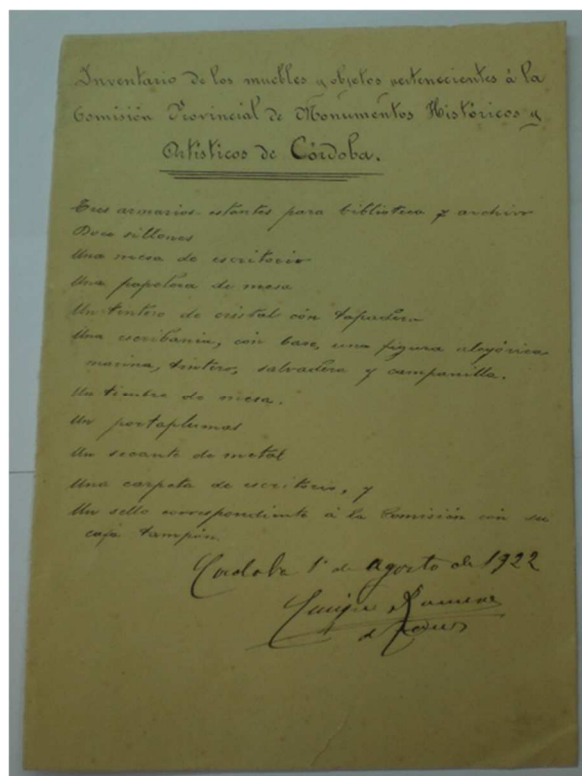 Inventario de los muebles y objetos pertenecientes á la
Comisión Provincial de Monumentos Históricos y
Artísticos de Córdoba.
Tres armarios-estantes para biblioteca y archivo
Doce sillones
Una mesa de escritorio
Una papelera de mesa
Un tintero de cristal con tapadera
Una escribanía, con base, una figura alegórica
marina, tintero, salvadera y campanilla.
Un timbre de mesa.
Un portaplumas
Un secante de metal
Una carpeta de escritorio, y
Un sello correspondiente á la Comisión con su
caja tampón.
Córdoba 1º de Agosto de 1922
Enrique Romero
de Torres